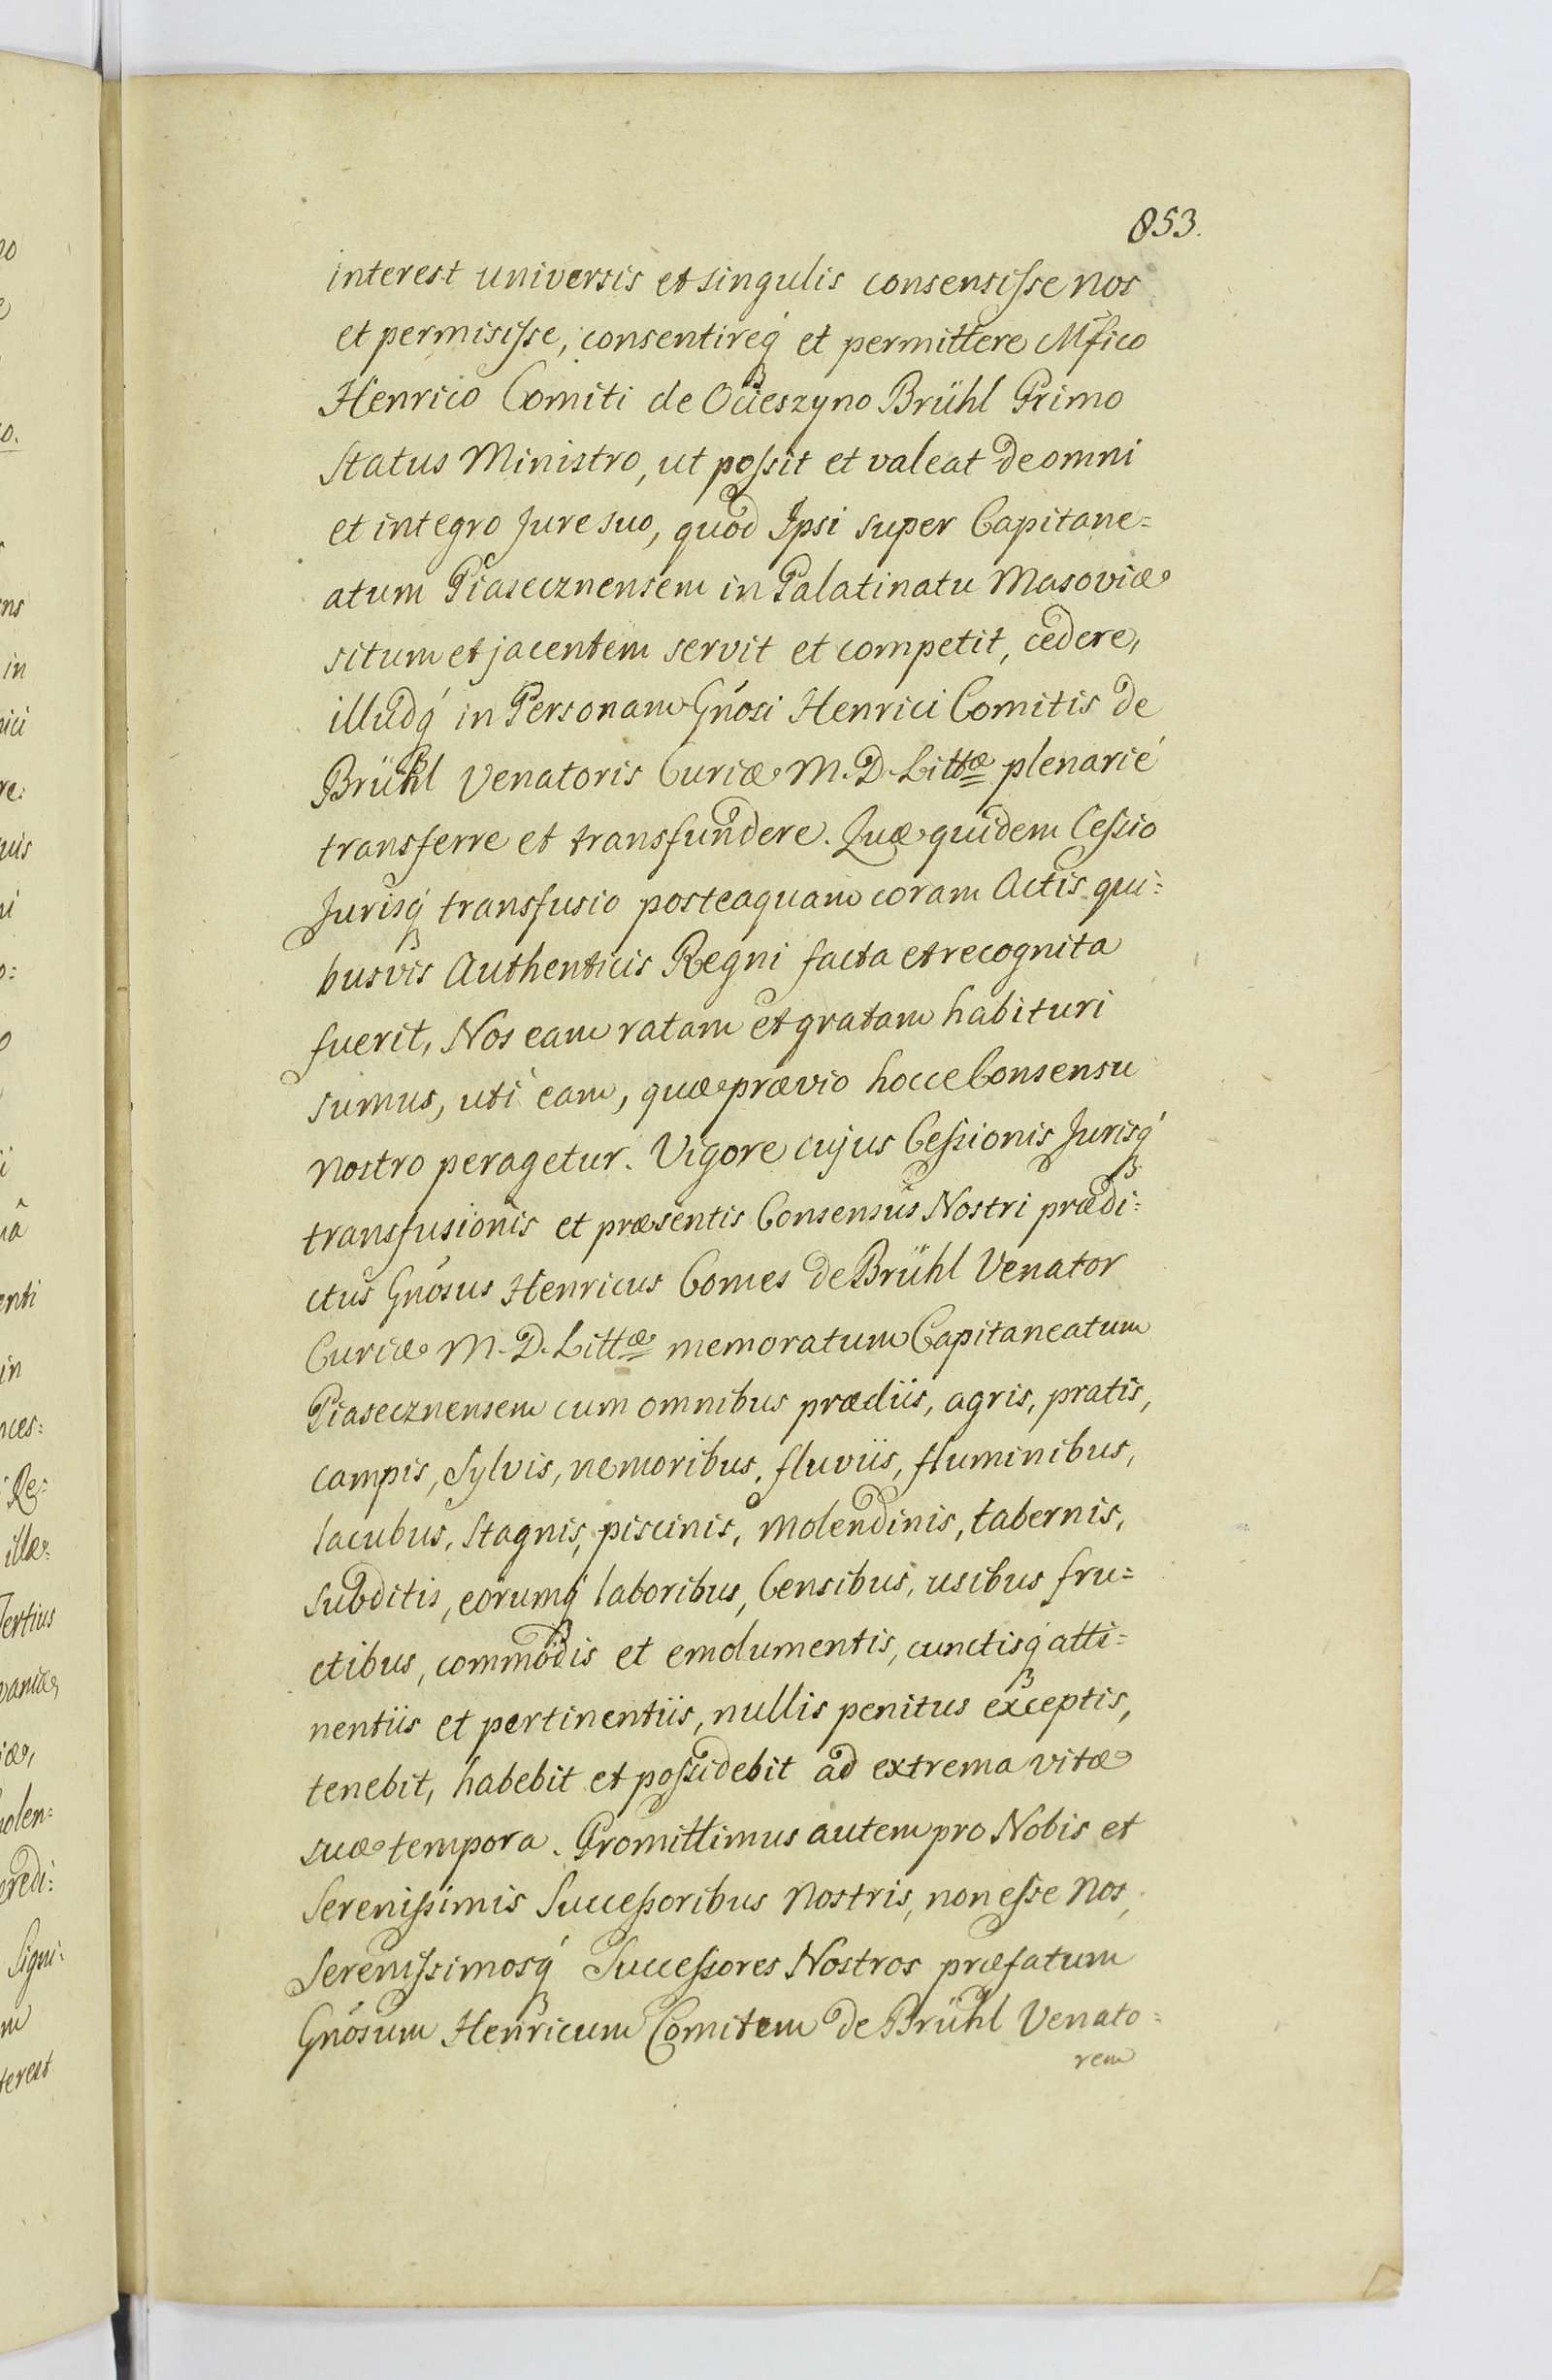 853.
interest universis et singulis consensisse nos
et permisisse, consentireq́ et permittere Mfico
Henrico Comiti de Ocieszyno Brühl Primo
Status Ministro, ut possit et valeat de omni
et integro Jure suo, quod Ipsi super Capitane=
atum Piasecznensem in Palatinatu Masoviæ
situm et jacentem servit et competit, cedere,
illudq́ in Personam Gńosi Henrici Comitis de
Brühl Venatoris Curiæ M. D. Littæ plenarié
transferre et transfundere. Quæ quidem Cessio
Jurisq́ transfusio posteaquam coram Actis qui=
busvis Authenticis Regni facta et recognita
fuerit, Nos eam ratam et gratam habituri
sumus, uti eam, quæ prævio hocce Consensu
nostro peragetur. Vigore cujus Cessionis Jurisq́
transfusionis et præsentis Consensus Nostri prædi=
ctus Gńosus Henricus Comes de Brühl Venator
Curiæ M. D. Littæ memoratum Capitaneatum
Piasecznensem cum omnibus prædiis, agris, pratis,
campis, Sylvis, nemoribus, fluviis, fluminibus,
lacubus, Stagnis, piscinis, molendinis, tabernis,
subditis, eorumq́ laboribus, Censibus, usibus fru=
ctibus, commodis et emolumentis, cunctisq́ atti=
nentiis et pertinentiis, nullis penitus exceptis,
tenebit, habebit et possidebit ad extrema vitæ
suæ tempora. Promittimus autem pro Nobis et
Serenissimis Successoribus Nostris, non esse Nos,
Serenissimosq́ Successores Nostros præfatum
Gńosum Henricum Comitem de Brühl Venato=
rem